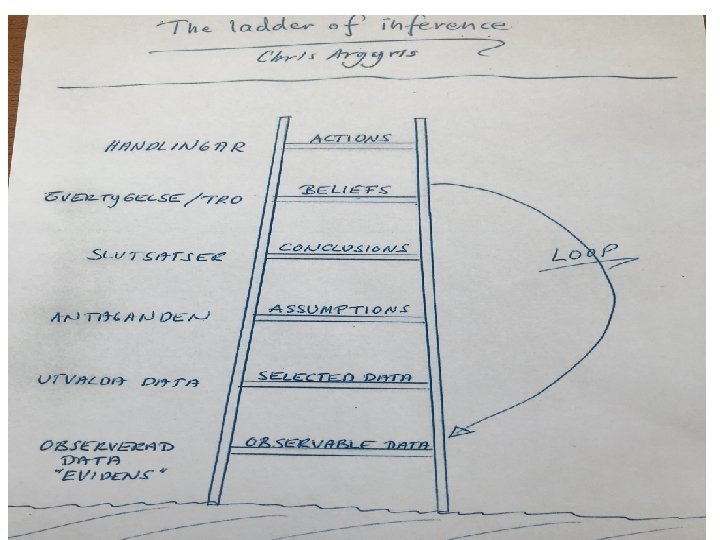 "The ladder of inference
Chris Argyris
HANDLINGAR ACTIONS
ÖVERTYGELSE/TRO BELIEFS
SLUTSATSER CONCLUSIONS
LOOP
ANTAGANDEN ASSUMPTIONS
UTVALDA DATA SELECTED DATA
OBSERVERAD OBSERVABLE DATA
DATA
"EVIDENS"